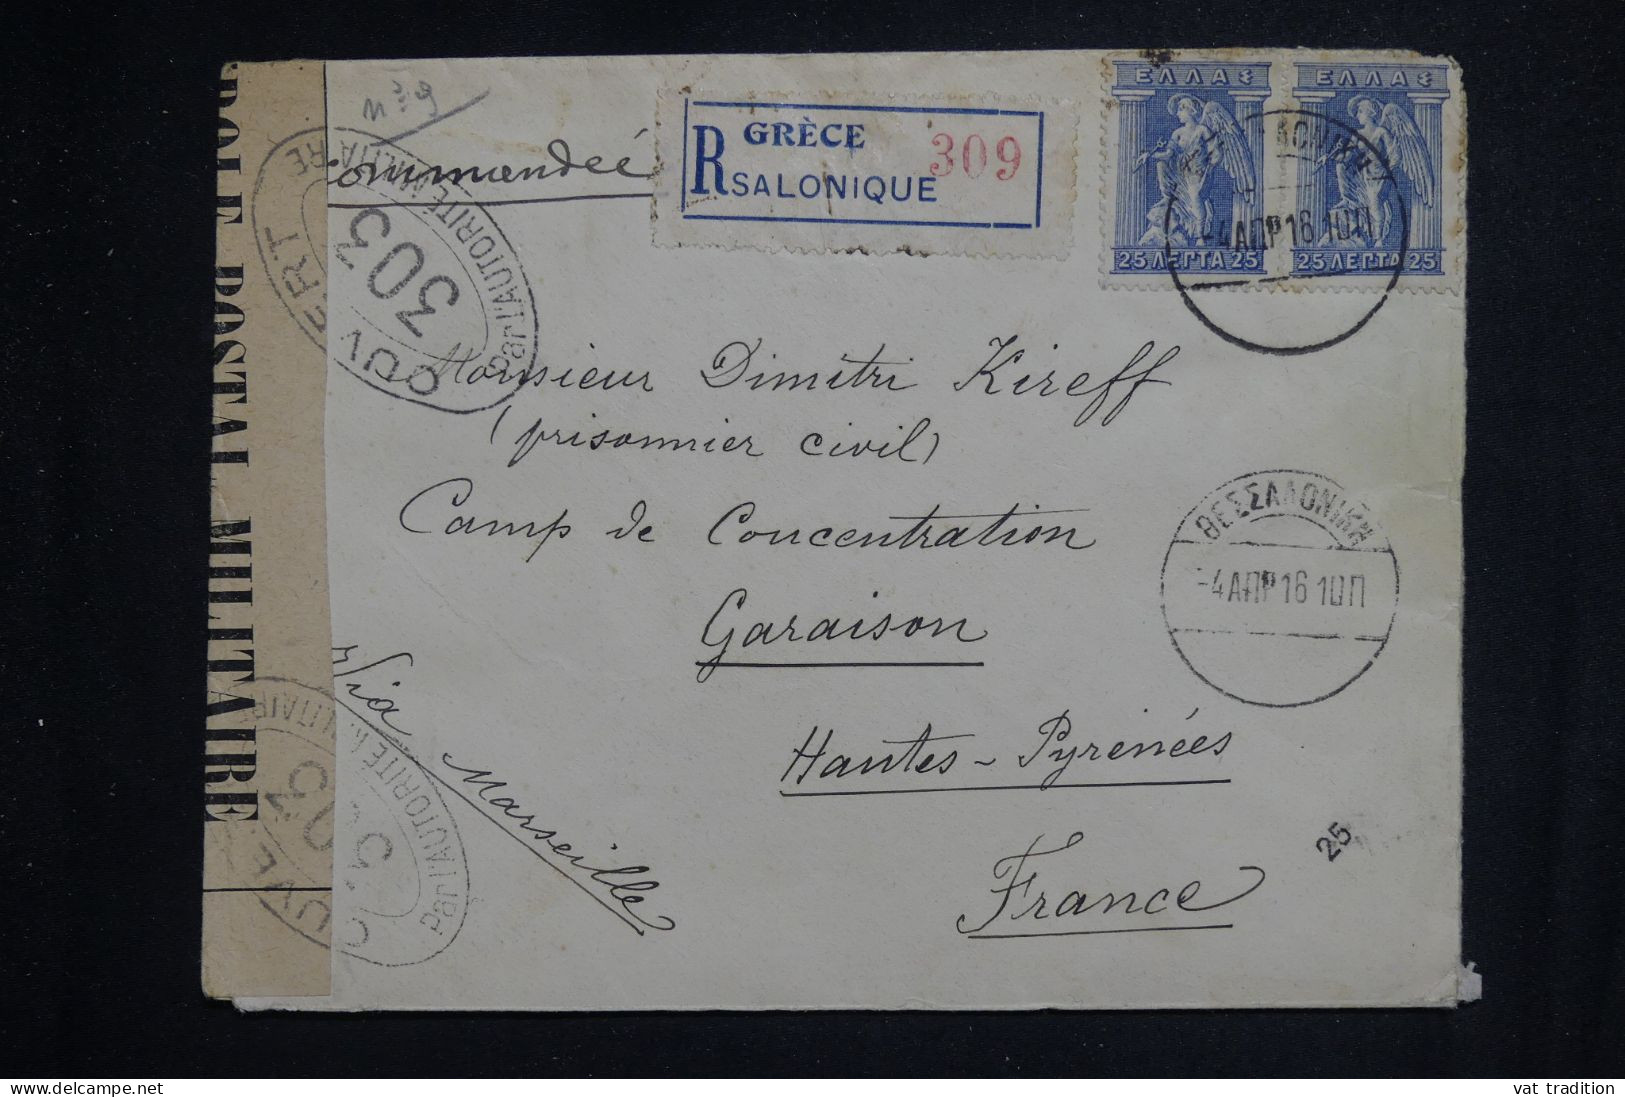 ROLE POSTAL MILITAIRE
OUVERT
Par l'AUTORITÉ MILITAIRE
303
ommandeé
GRÈCE
R
SALONIQUE
309
ΕΛΛΑΣ
25 ΛΕΠΤΑ 25
ΕΛΛΑΣ
25 ΛΕΠΤΑ 25
-4 ΑΠΡ 16 10Π
Monsieur Dimitri Kireff
(prisonnier civil)
Camp de Concentration
Garaison
Hautes-Pyrénées
France
Via Marseille
ΘΕΣΣΑΛΟΝΙΚΗ
-4 ΑΠΡ 16 10Π
25
Par l'AUTORITÉ MILITAIRE
vat tradition